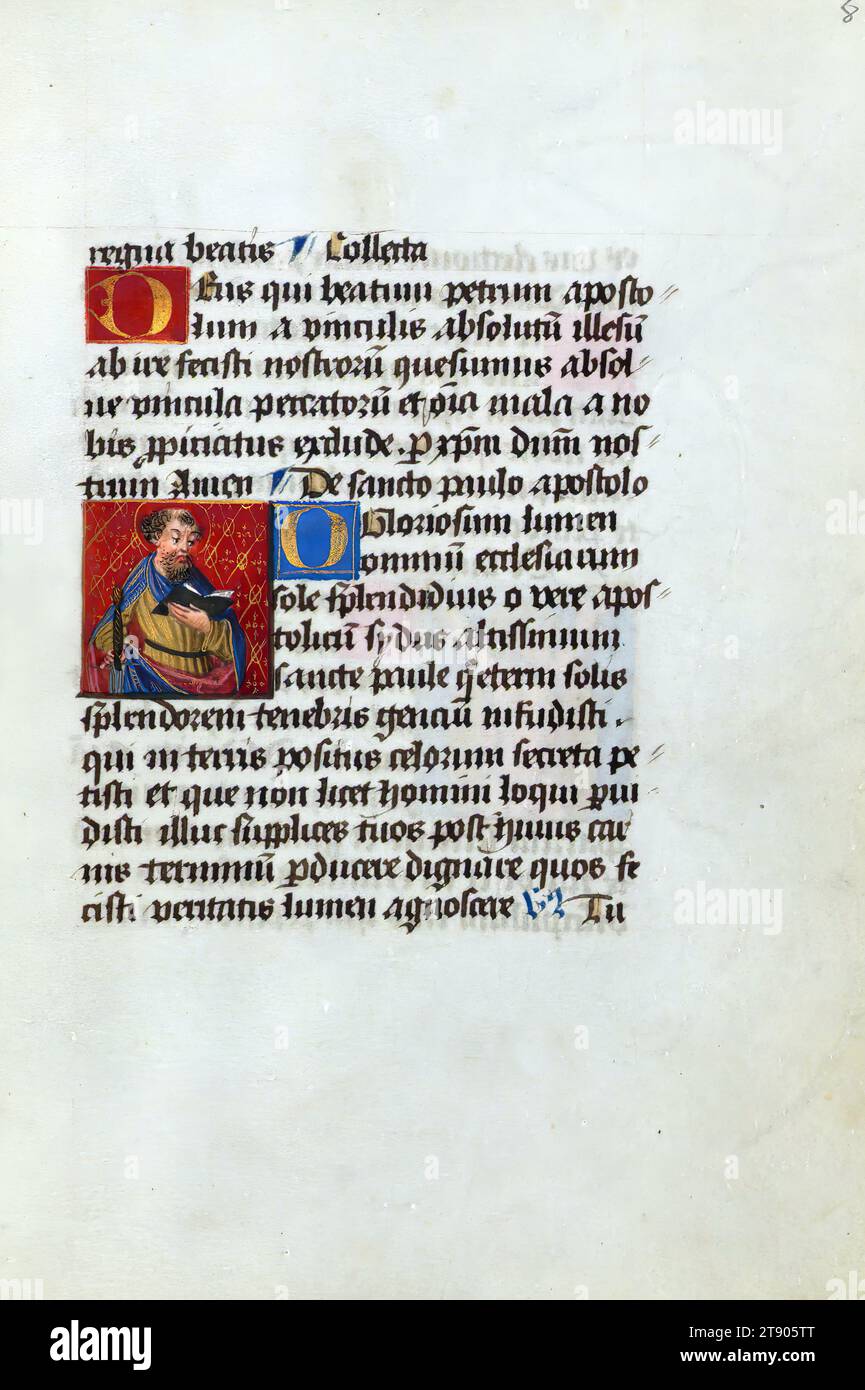 8
regnu beatis Collecta
Deus qui beatum petrum aposto〃
lum a vinculis absolutū illesū
abire fecisti nostrorū quesumus absol〃
ue vincula peccatorū et oīa mala a no
bis ꝓpiciatus exclude. ꝑ xpm dum nos〃
trum Amen De sancto paulo apostolo
O Gloriosum lumen
omniū ecclesiarum
sole splendidius o vere apos〃
tolicū sydus altissimum
sancte paule qͥ eterni solis
splendorem tenebris genciū infudisti.
qui in terris positus celorum secreta pe〃
tisti et que non licet homini loqui ꝑui
disti illuc supplices tuos post huius car
nis terminū ꝑducere dignare quos fe
cisti veritatis lumen agnoscere Vͦ Tu
alamy
Image ID: 2T905TT
www.alamy.com